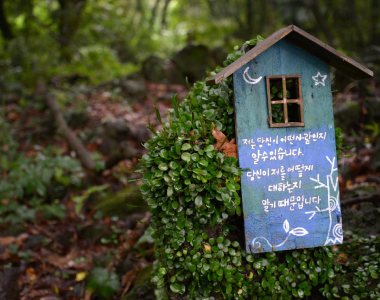 저는 당신이 어떤사람인지
알수있습니다.
당신이 저를 어떻게
대하는지
알기 때문입니다